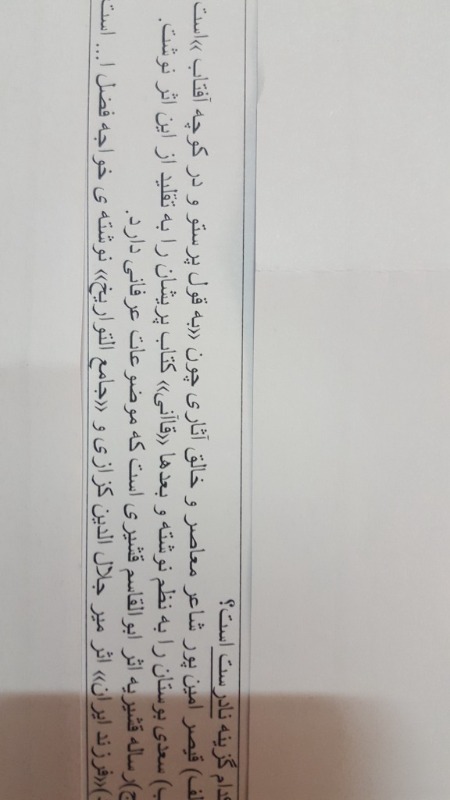 کدام گزینه نادرست است؟
الف) قیصر امین پور شاعر معاصر و خالق آثاری چون «به قول پرستو و در کوچه آفتاب »است
ب) سعدی بوستان را به نظم نوشته و بعدها «قاآنی» کتاب پریشان را به تقلید از این اثر نوشت.
ج)رساله قشیریه اثر ابوالقاسم قشیری است که موضوعات عرفانی دارد.
)«فرزند ایران» اثر میر جلال الدین کزازی و «جامع التواریخ» نوشته ی خواجه فضل ا... است